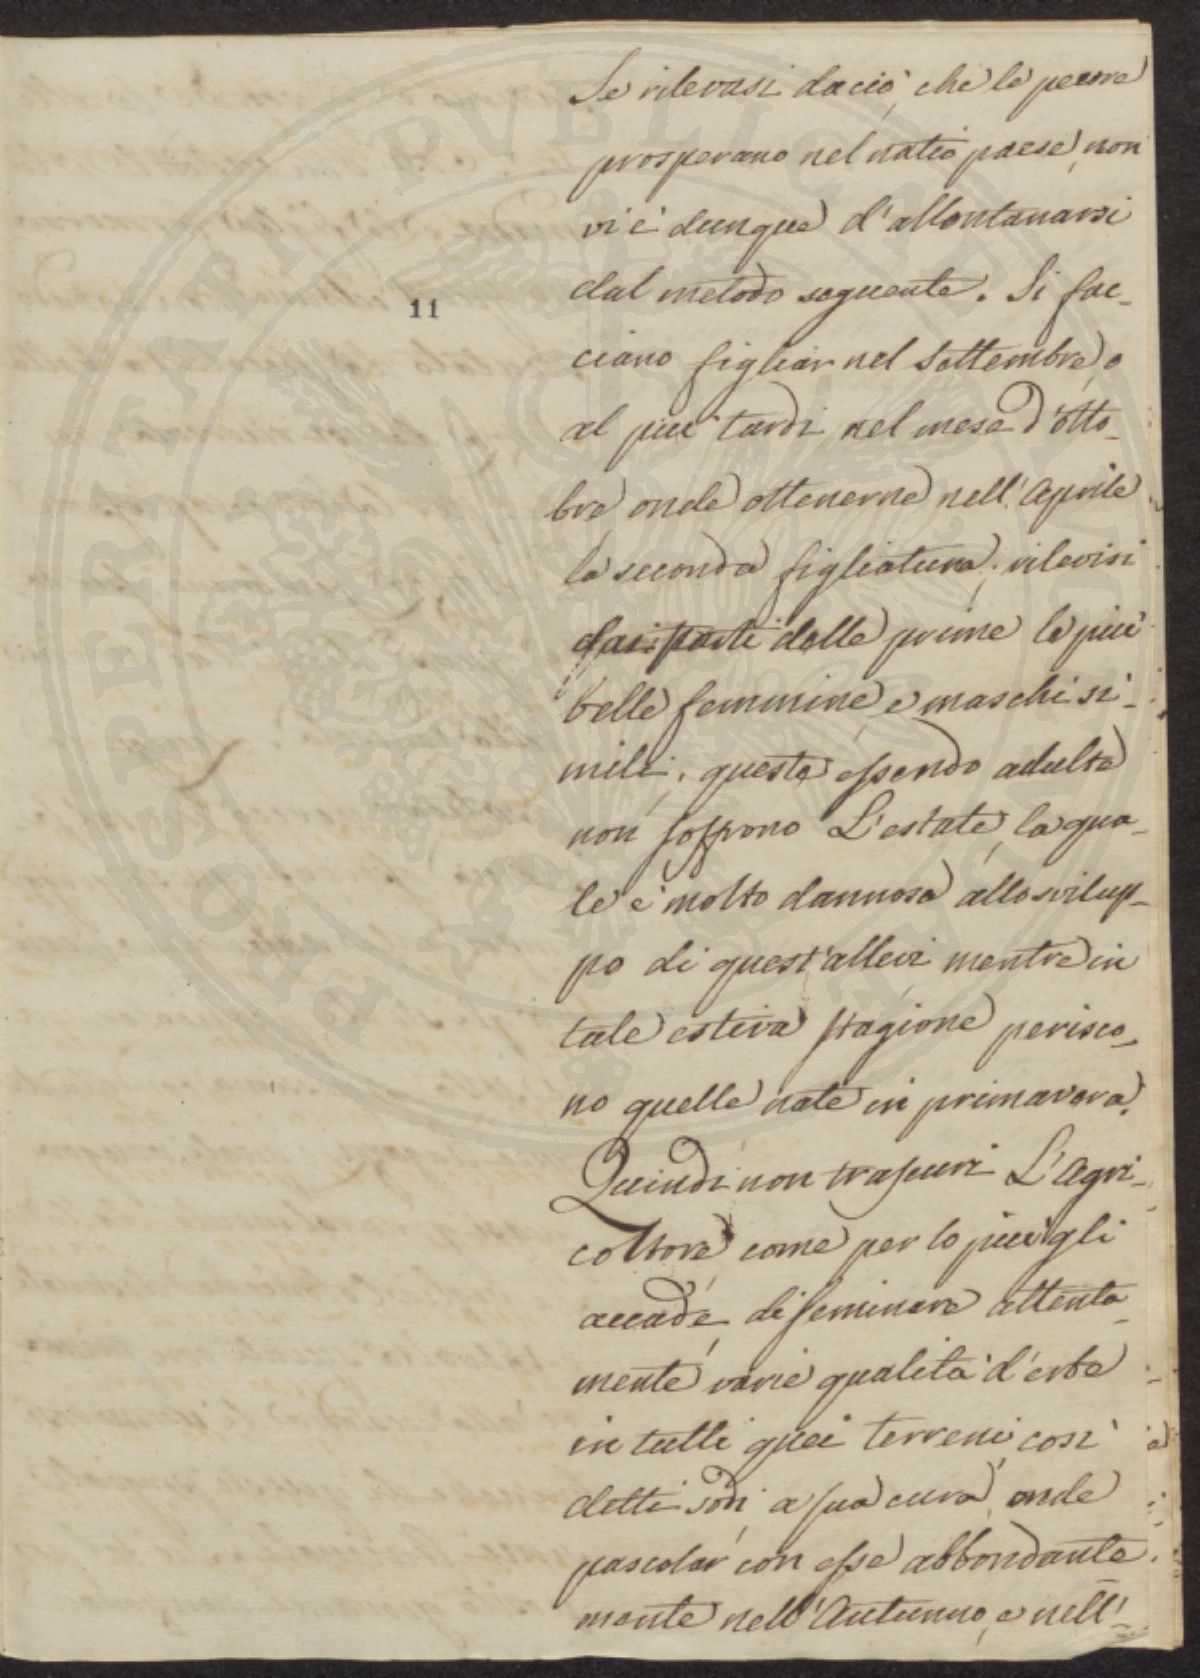 Se rilevasi daciò, che le pecore
prosperano nel natio paese, non
vi è dunque d'allontanarsi
dal metodo seguente. Si fac-
11
ciano figliar nel Settembre, o
al più tardi nel mese d'Otto-
bre onde ottenerne nell'Aprile
la seconda figliatura; rilevisi
dai parti delle prime le più
belle femmine e maschi si-
mili; queste essendo adulte
non soffrono L'estate, la qua-
le è molto dannosa allo svilup-
po di quest'allevi mentre in
tale estiva stagione perisco-
no quelle nate in primavera.
Quindi non trascuri L'Agri-
coltore come per lo più gli
accade, di seminare attenta-
mente varie qualità d'erbe
in tutti quei terreni, così
detti sodi a sua cura, onde
pascolar con esse abbondante-
mente nell'Autunno, e nell'-
PROSPERITATI PVBLICAE